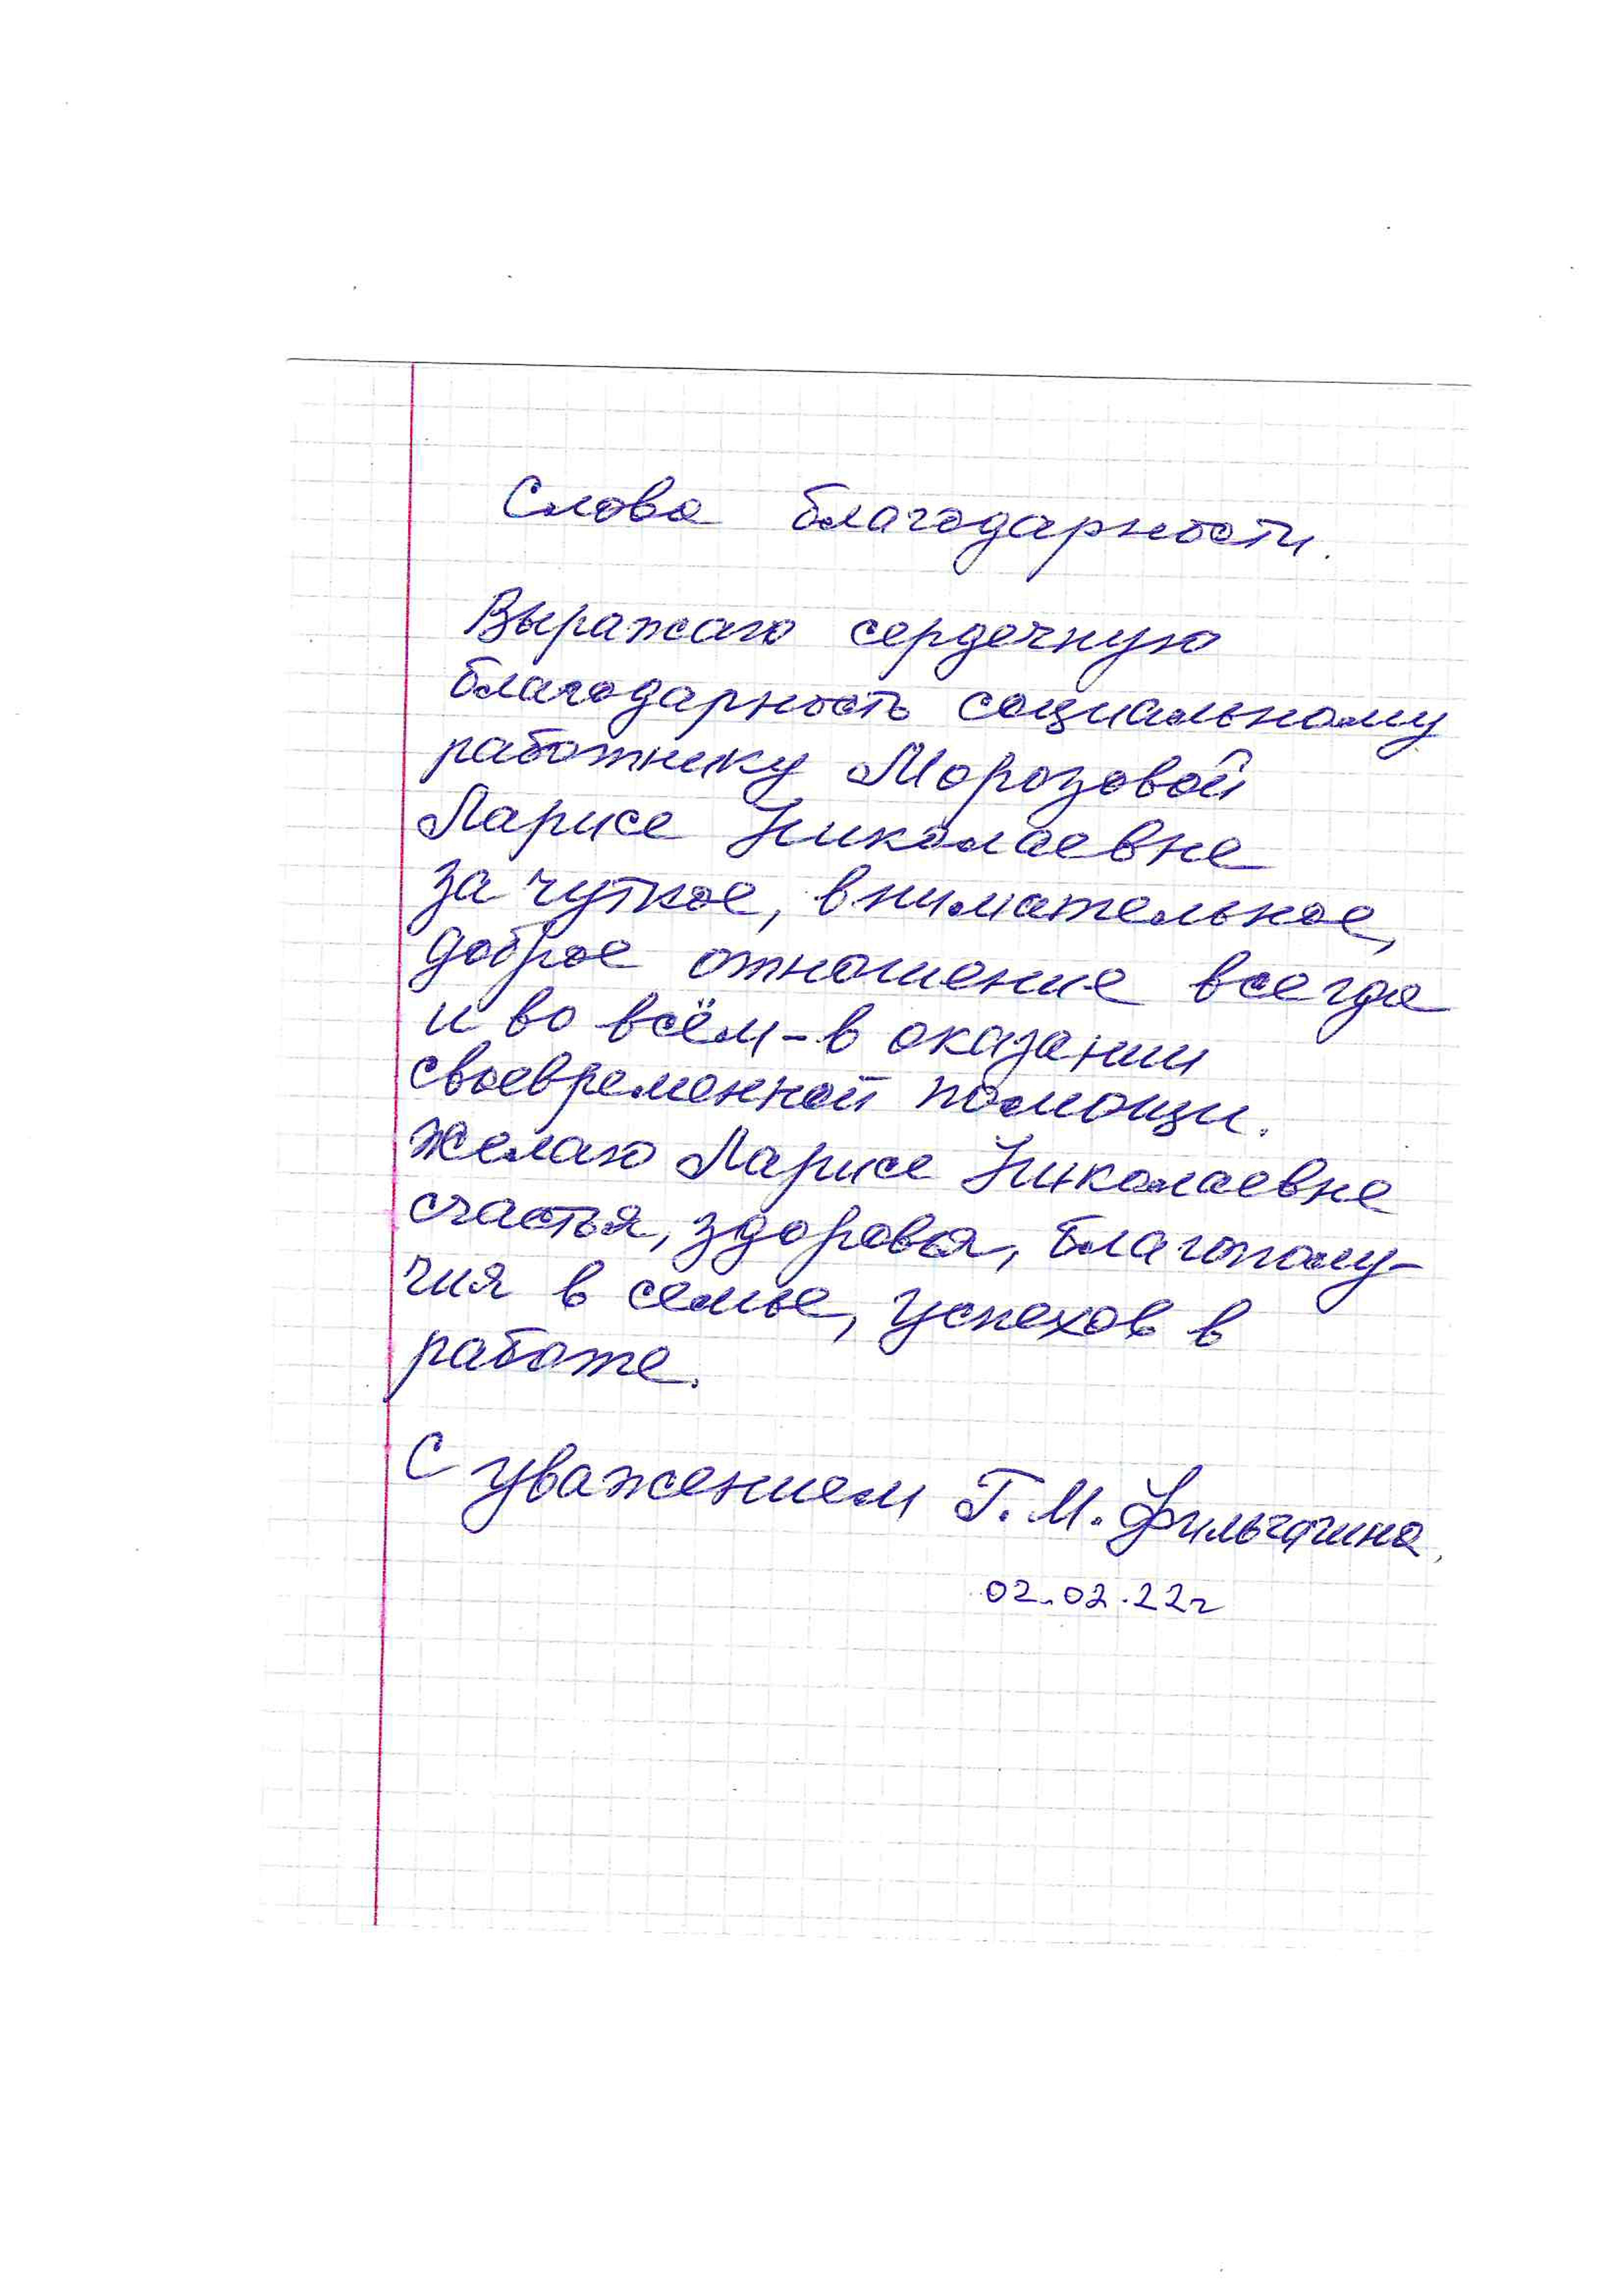 Слова благодарности.
Выражаю сердечную
благодарность социальному
работнику Морозовой
Ларисе Николаевне
за чуткое, внимательное,
доброе отношение всегда
и во всём - в оказании
своевременной помощи.
Желаю Ларисе Николаевне
счастья, здоровья, благополу-
чия в семье, успехов в
работе.
С уважением Г. М.
02.02.22г